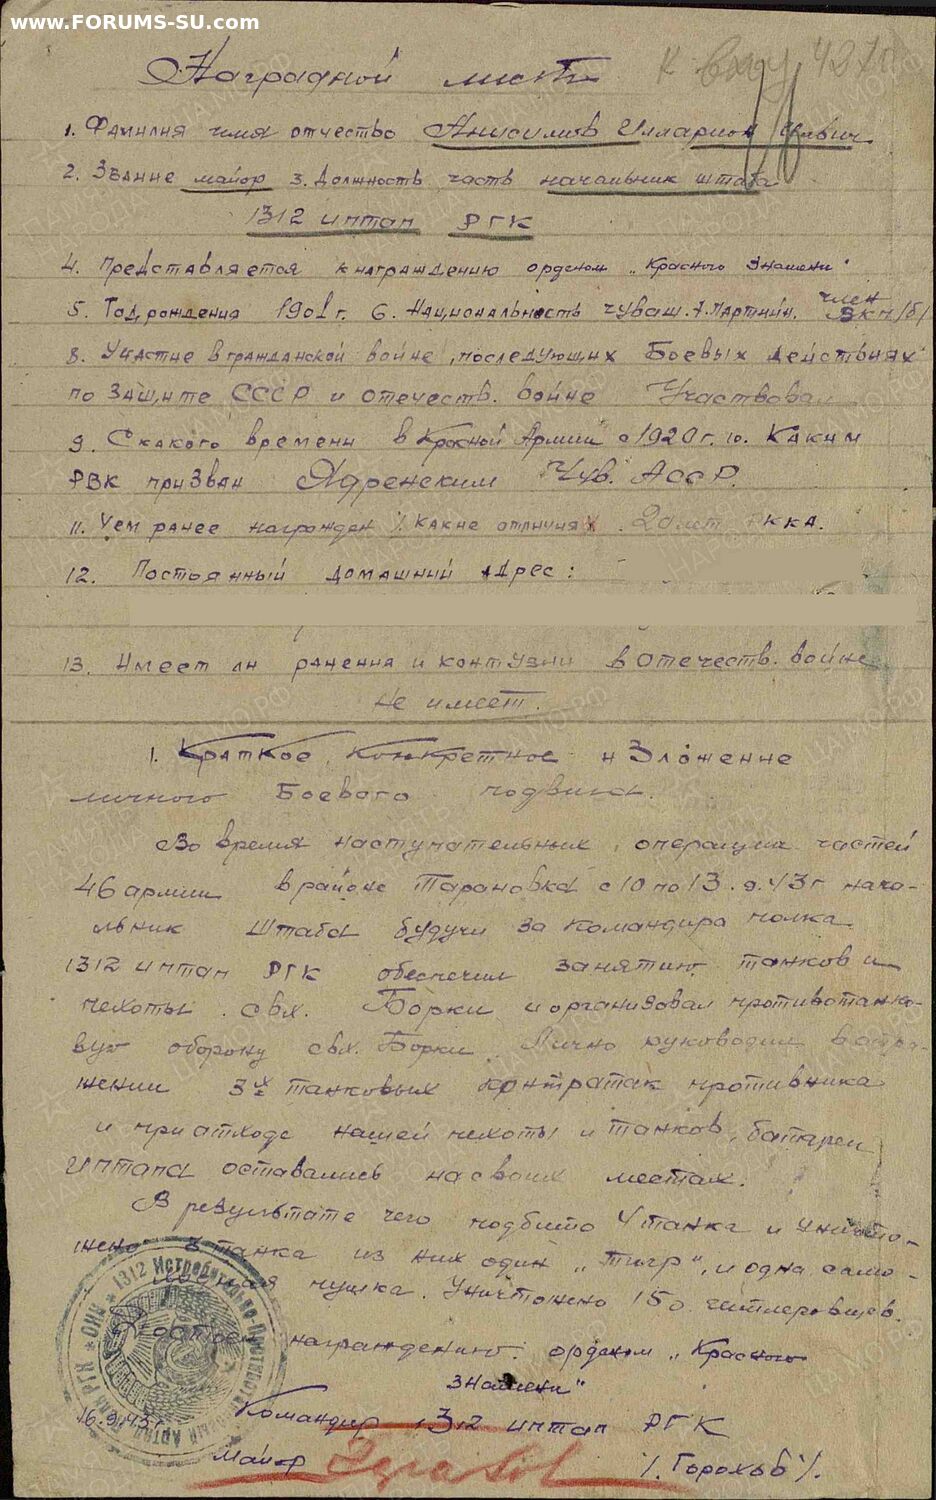 www.FORUMS-SU.com
Наградной лист
1. Фамилия имя отчество Анисимов Илларион
2. Звание майор 3. Должность, часть начальник штаба
1312 иптап РГК
4. Представляется к награждению орденом „Красного Знамени"
5. Год рождения 1901 г. 6. Национальность чуваш. 7. Партийн. член ВКП/б/
8. Участие в гражданской войне, последующих боевых действиях
по защите СССР и отечеств. войне Участвовал
9. С какого времени в Красной Армии с 1920 г. 10. Каким
РВК призван Ядренским Чув. АССР.
11. Чем ранее награжден /. Какие отличия/ 20 лет РККА.
12. Постоянный домашний адрес:
13. Имеет ли ранения и контузии в отечеств. войне
Не имеет.
1. Краткое, конкретное изложение
личного боевого подвига.
Во время наступательных операции частей
46 армии в районе Тарановка с 10 по 13.9.43 г нача-
льник штаба будучи за командира полка
1312 иптап РГК обеспечил занятию танков и
пехоты свх. Борки и организовал противотанко-
вую оборону свх. Борки. Лично руководил в отра-
жении 3х танковых контратак противника
и при отходе нашей пехоты и танков, батареи
иптапа оставались на своих местах.
В результате чего подбито 4 танка и уничто-
жено 3 танка из них один „Тигр", и одна само-
пушка. Уничтожено 150 гитлеровцев.
награждению орденом „Красного
Знамени"
16.9.43 г. Командир 1312 иптап РГК
Майор /. Горохов /.
1312 Истребительно-Противотанковый Артил. Полк РГК